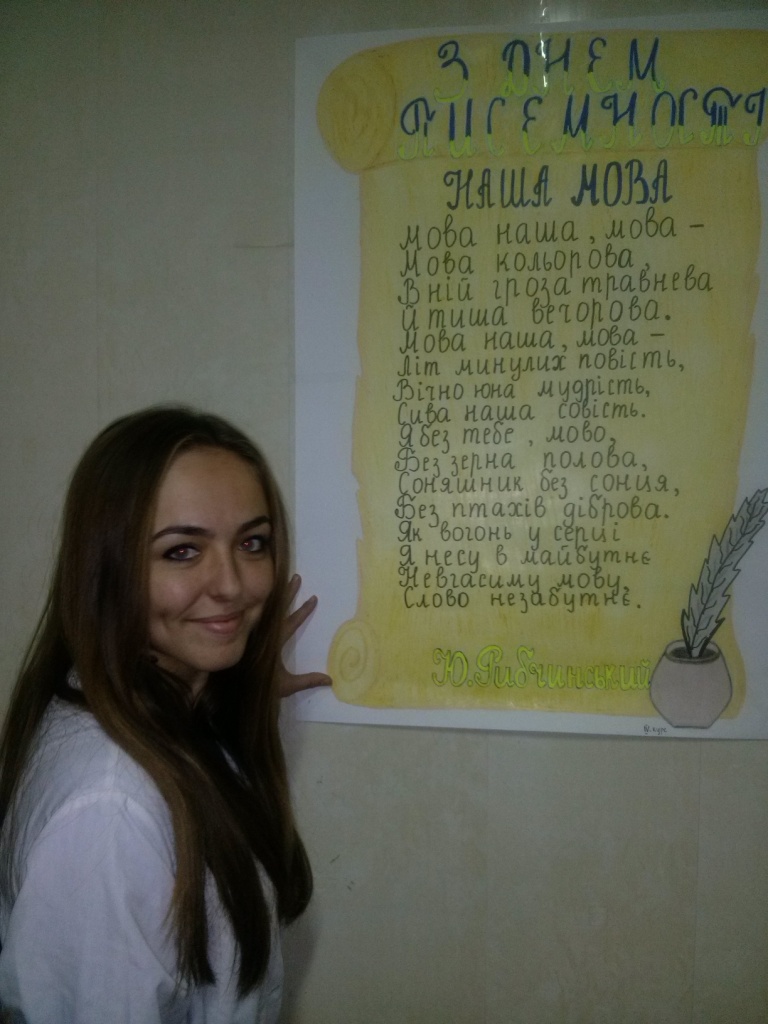 З ДНЕМ
ПИСЕМНОСТІ
НАША МОВА
Мова наша, мова –
Мова кольорова,
В ній гроза травнева
Й тиша вечорова.
Мова наша, мова –
Літ минулих повість,
Вічно юна мудрість,
Сива наша совість.
Я без тебе, мово,
Без зерна полова,
Соняшник без сонця,
Без птахів діброва.
Як вогонь у серці
Я несу в майбутнє
Невгасиму мову,
Слово незабутнє.
Ю. Рибчинський
IV курс